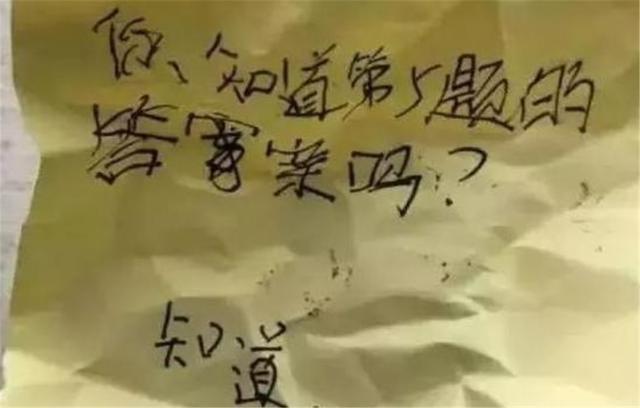 你知道第5题的
答案吗?
知道